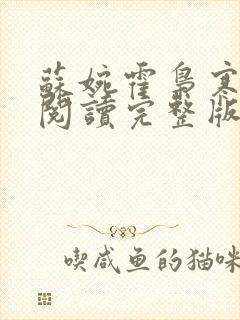 蘇婉霍梟寒
閱讀完整版
喫咸鱼的猫咪